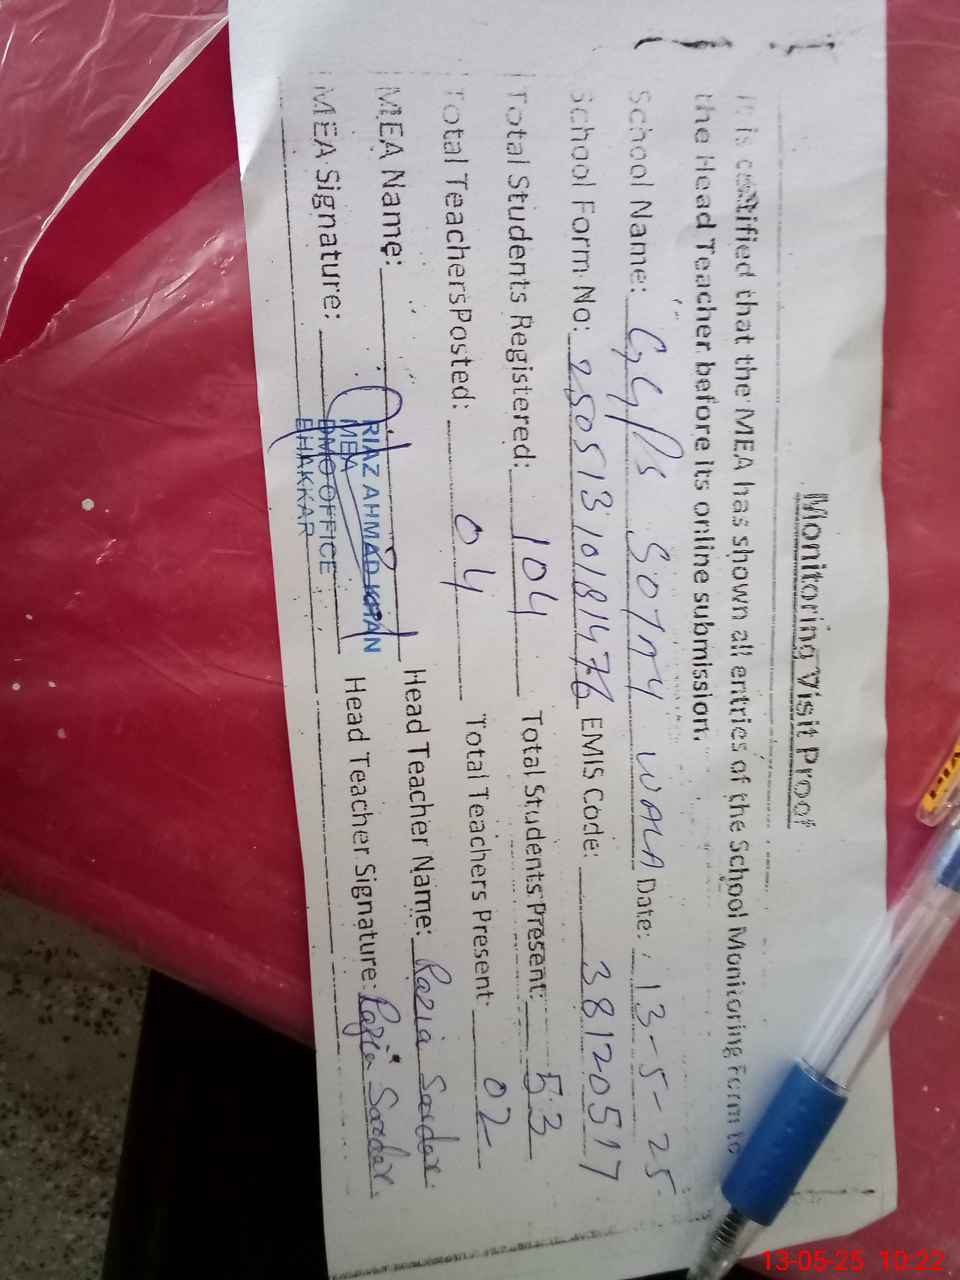 Monitoring Visit Proof
It is certified that the MEA has shown all entries of the School Monitoring Form to
the Head Teacher before its online submission.
School Name: GGPS SOTAY WALA Date: 13-5-25
School Form No: 25051310181476 EMIS Code: 38120517
Total Students Registered: 104 Total Students Present: 53
Total Teachers Posted: 04 Total Teachers Present: 02
MEA Name: RIAZ AHMAD KHAN Head Teacher Name: Razia Sardar
MEA
MEA Signature: DMO OFFICE Head Teacher Signature: Razia Sardar
BHAKKAR
13-05-25 10:22